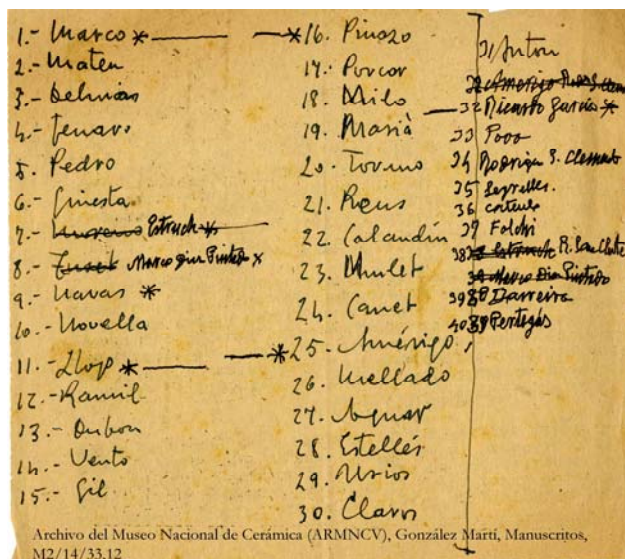 1.- Marco *
2.- Mateu
3.- Delmas
4.- Genaro
5. Pedro
6.- Ginesta
7.- Estruch *
8.- Marco Diaz Pintado *
9.- Navas *
10.- Novella
11.- Llop *
12.- Ramil
13.- Dubon
14.- Vento
15.- Gil
*16. Pinazo
17. Porcar
18. Milo
19. Masià
20. Tormo
21. Reus
22. Calandín
23. Mulet
24. Canet
*25. Amérigo
26. Mellado
27. Aguar
28. Estellés
29. Usios
30. Claros
31 Anton
32 Ricardo García *
33 Povo
34 Rodrigu S. Clemente
35
36
37 Folchi
38
39 Barreira
40 Pertegás
Archivo del Museo Nacional de Cerámica (ARMNCV), González Martí, Manuscritos,
M2/14/33.12